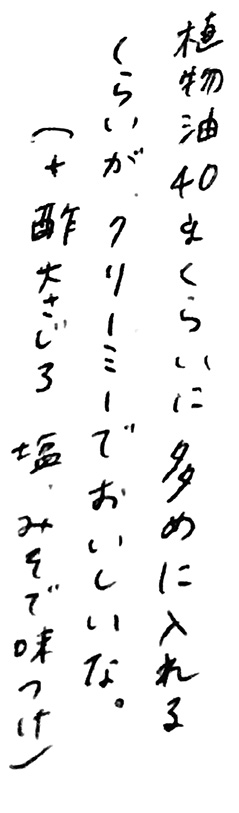 植物油40gくらいに多めに入れる
くらいが クリーミーでおいしいな。
(+酢大さじ3 塩、みそで味つけ)